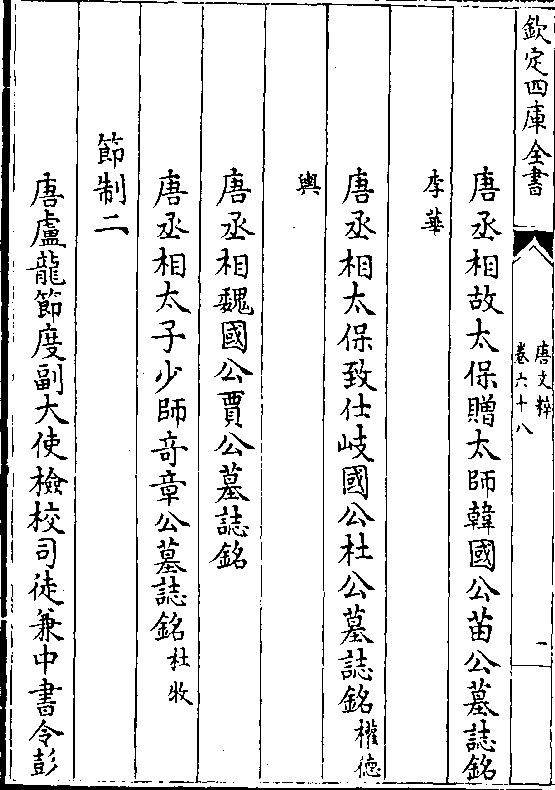 欽定四庫全書
唐文粹
卷六十八
一
唐丞相故太保贈太師韓國公苗公墓誌銘
李華
唐丞相太保致仕岐國公杜公墓誌銘權德
輿
唐丞相魏國公賈公墓誌銘
唐丞相太子少師奇章公墓誌銘杜牧
節制二
唐盧龍節度副大使檢校司徒兼中書令彭